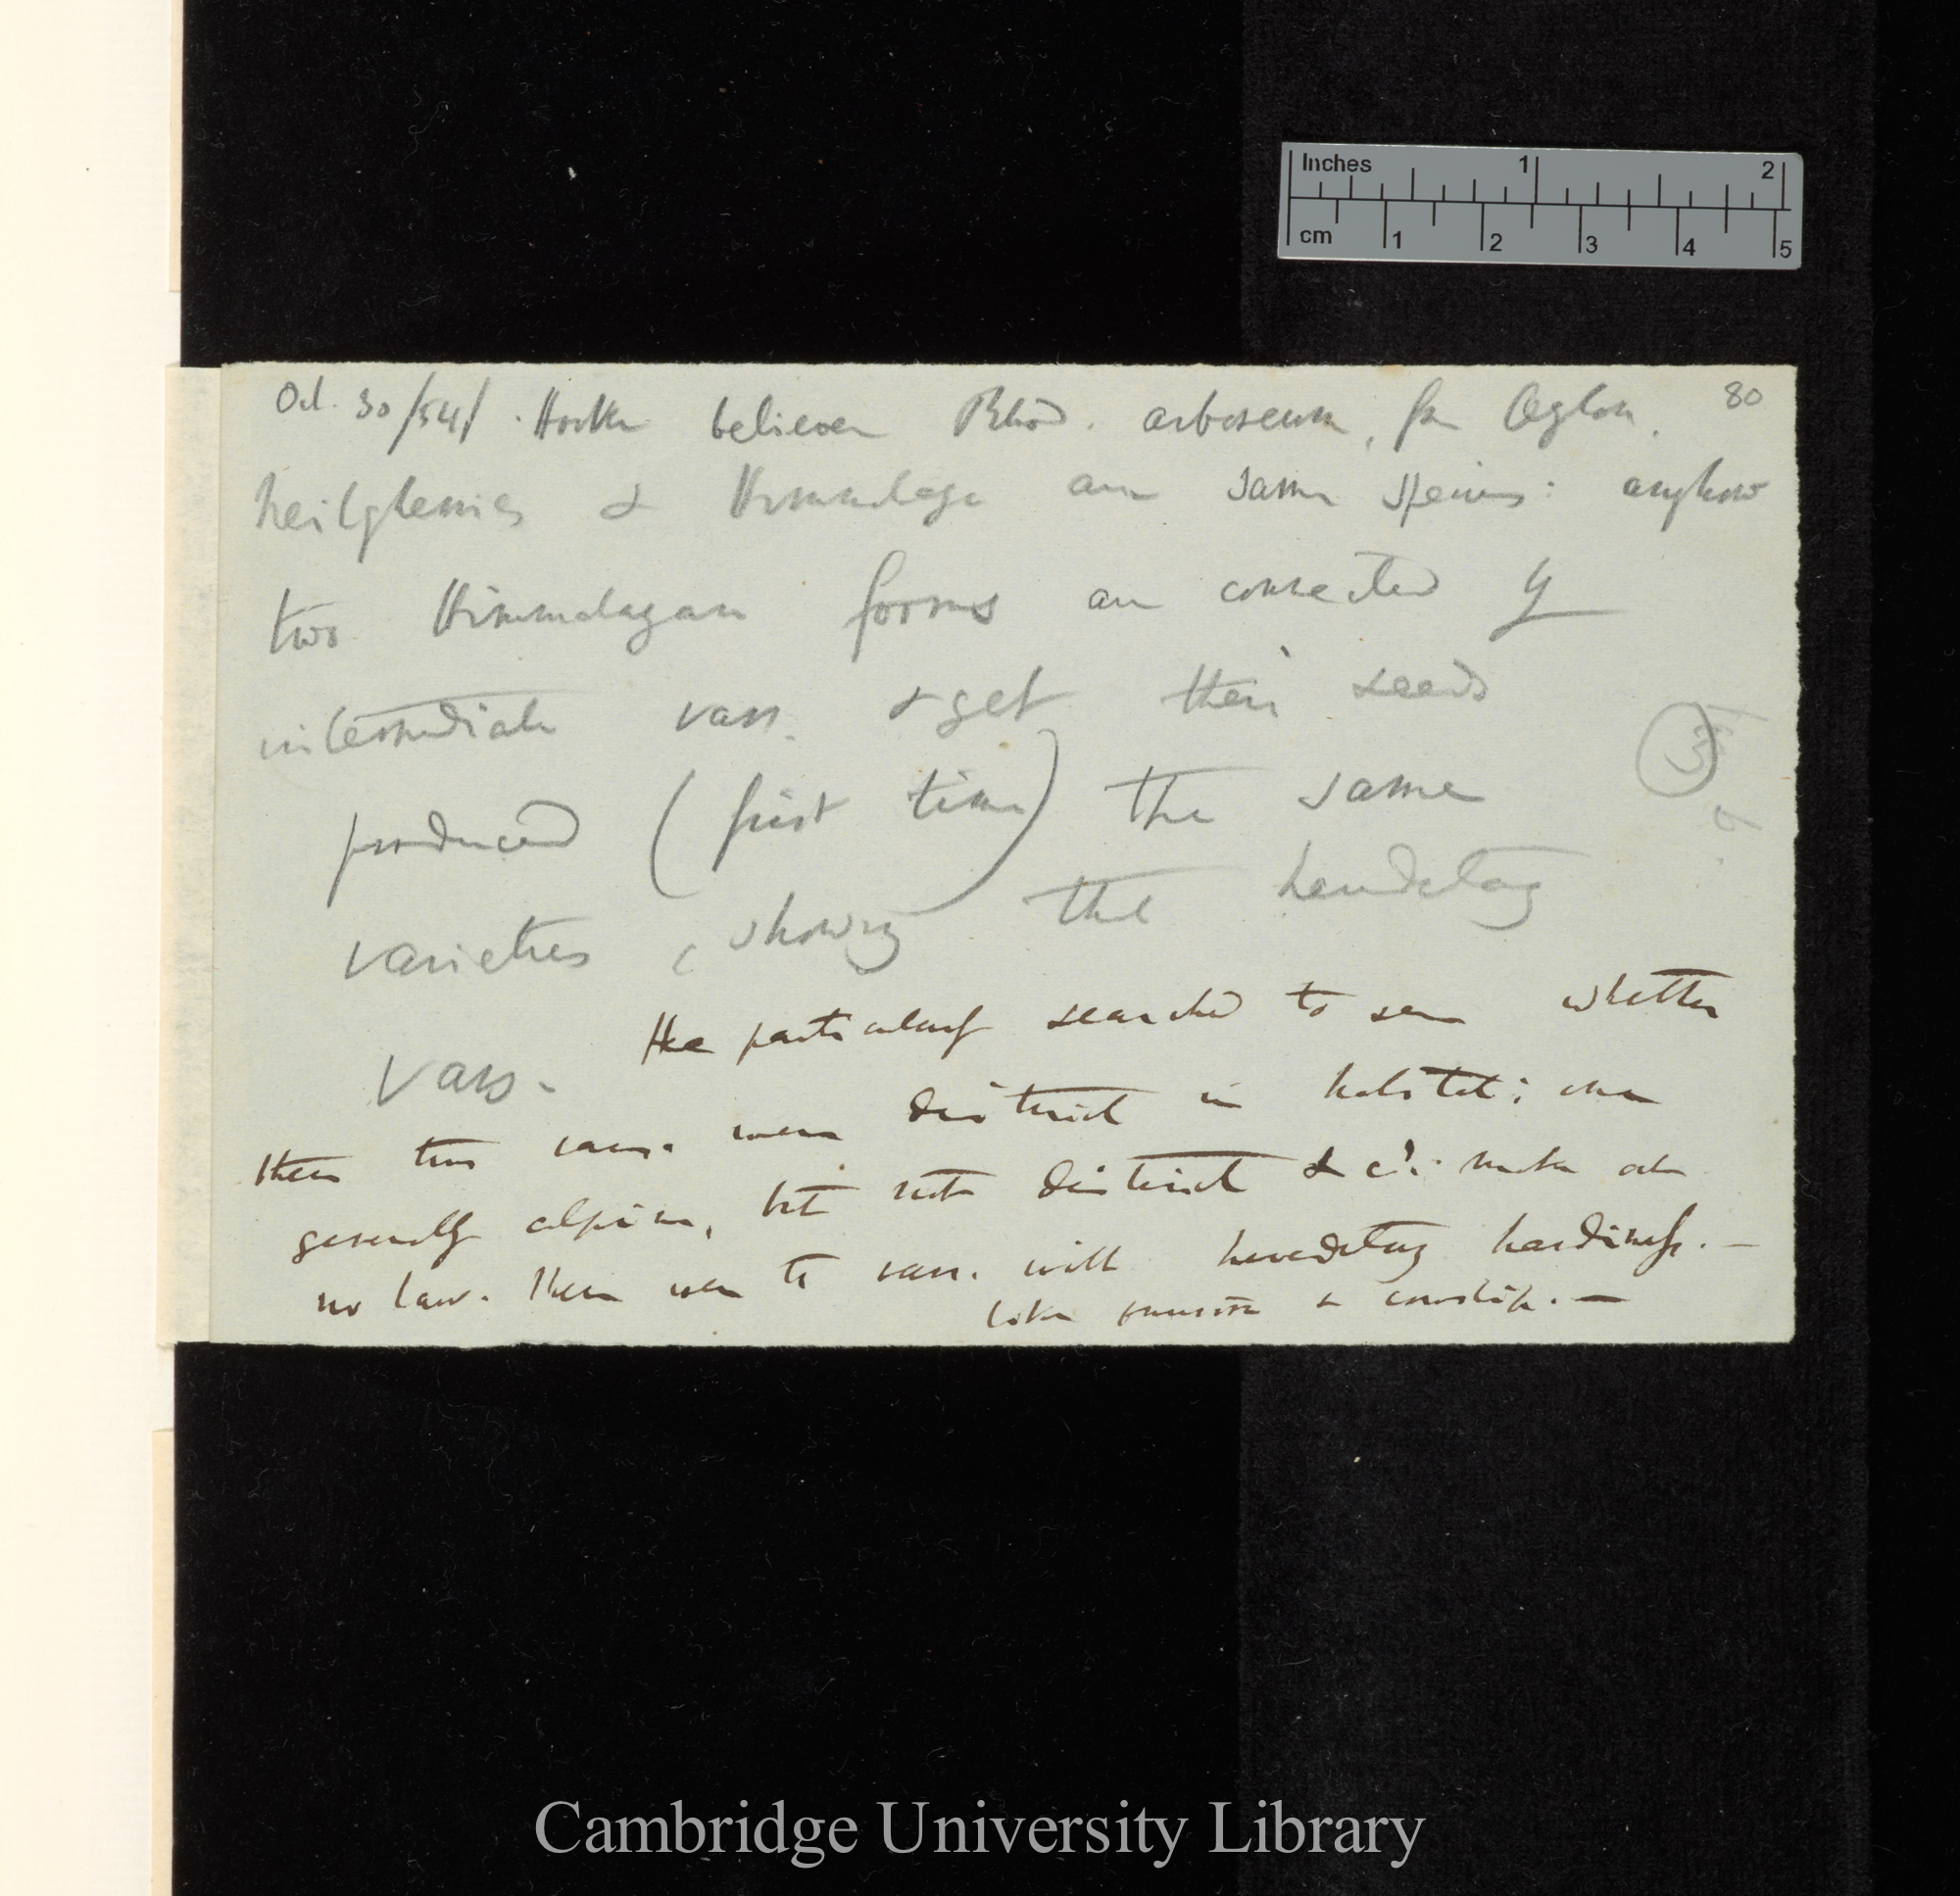 Inches 1 2
cm 1 2 3 4 5
80
Oct. 30/54/ Hooker believes Rhod. arboreum, fr Ceylon,
Neilgherries & Himmalaya are same species: anyhow
two Himmalayan forms are connected by
intermediate vars. & yet their seeds
produced (first time) the same
varieties, showing the hereditary
vars.
3
He particularly searched to see whether
these two vars. were distinct in habitat; one
generally alpine, but not distinct & cd. make out
no law. Here were to vars. with hereditary hardiness.—
like primrose & cowslip.—
Cambridge University Library